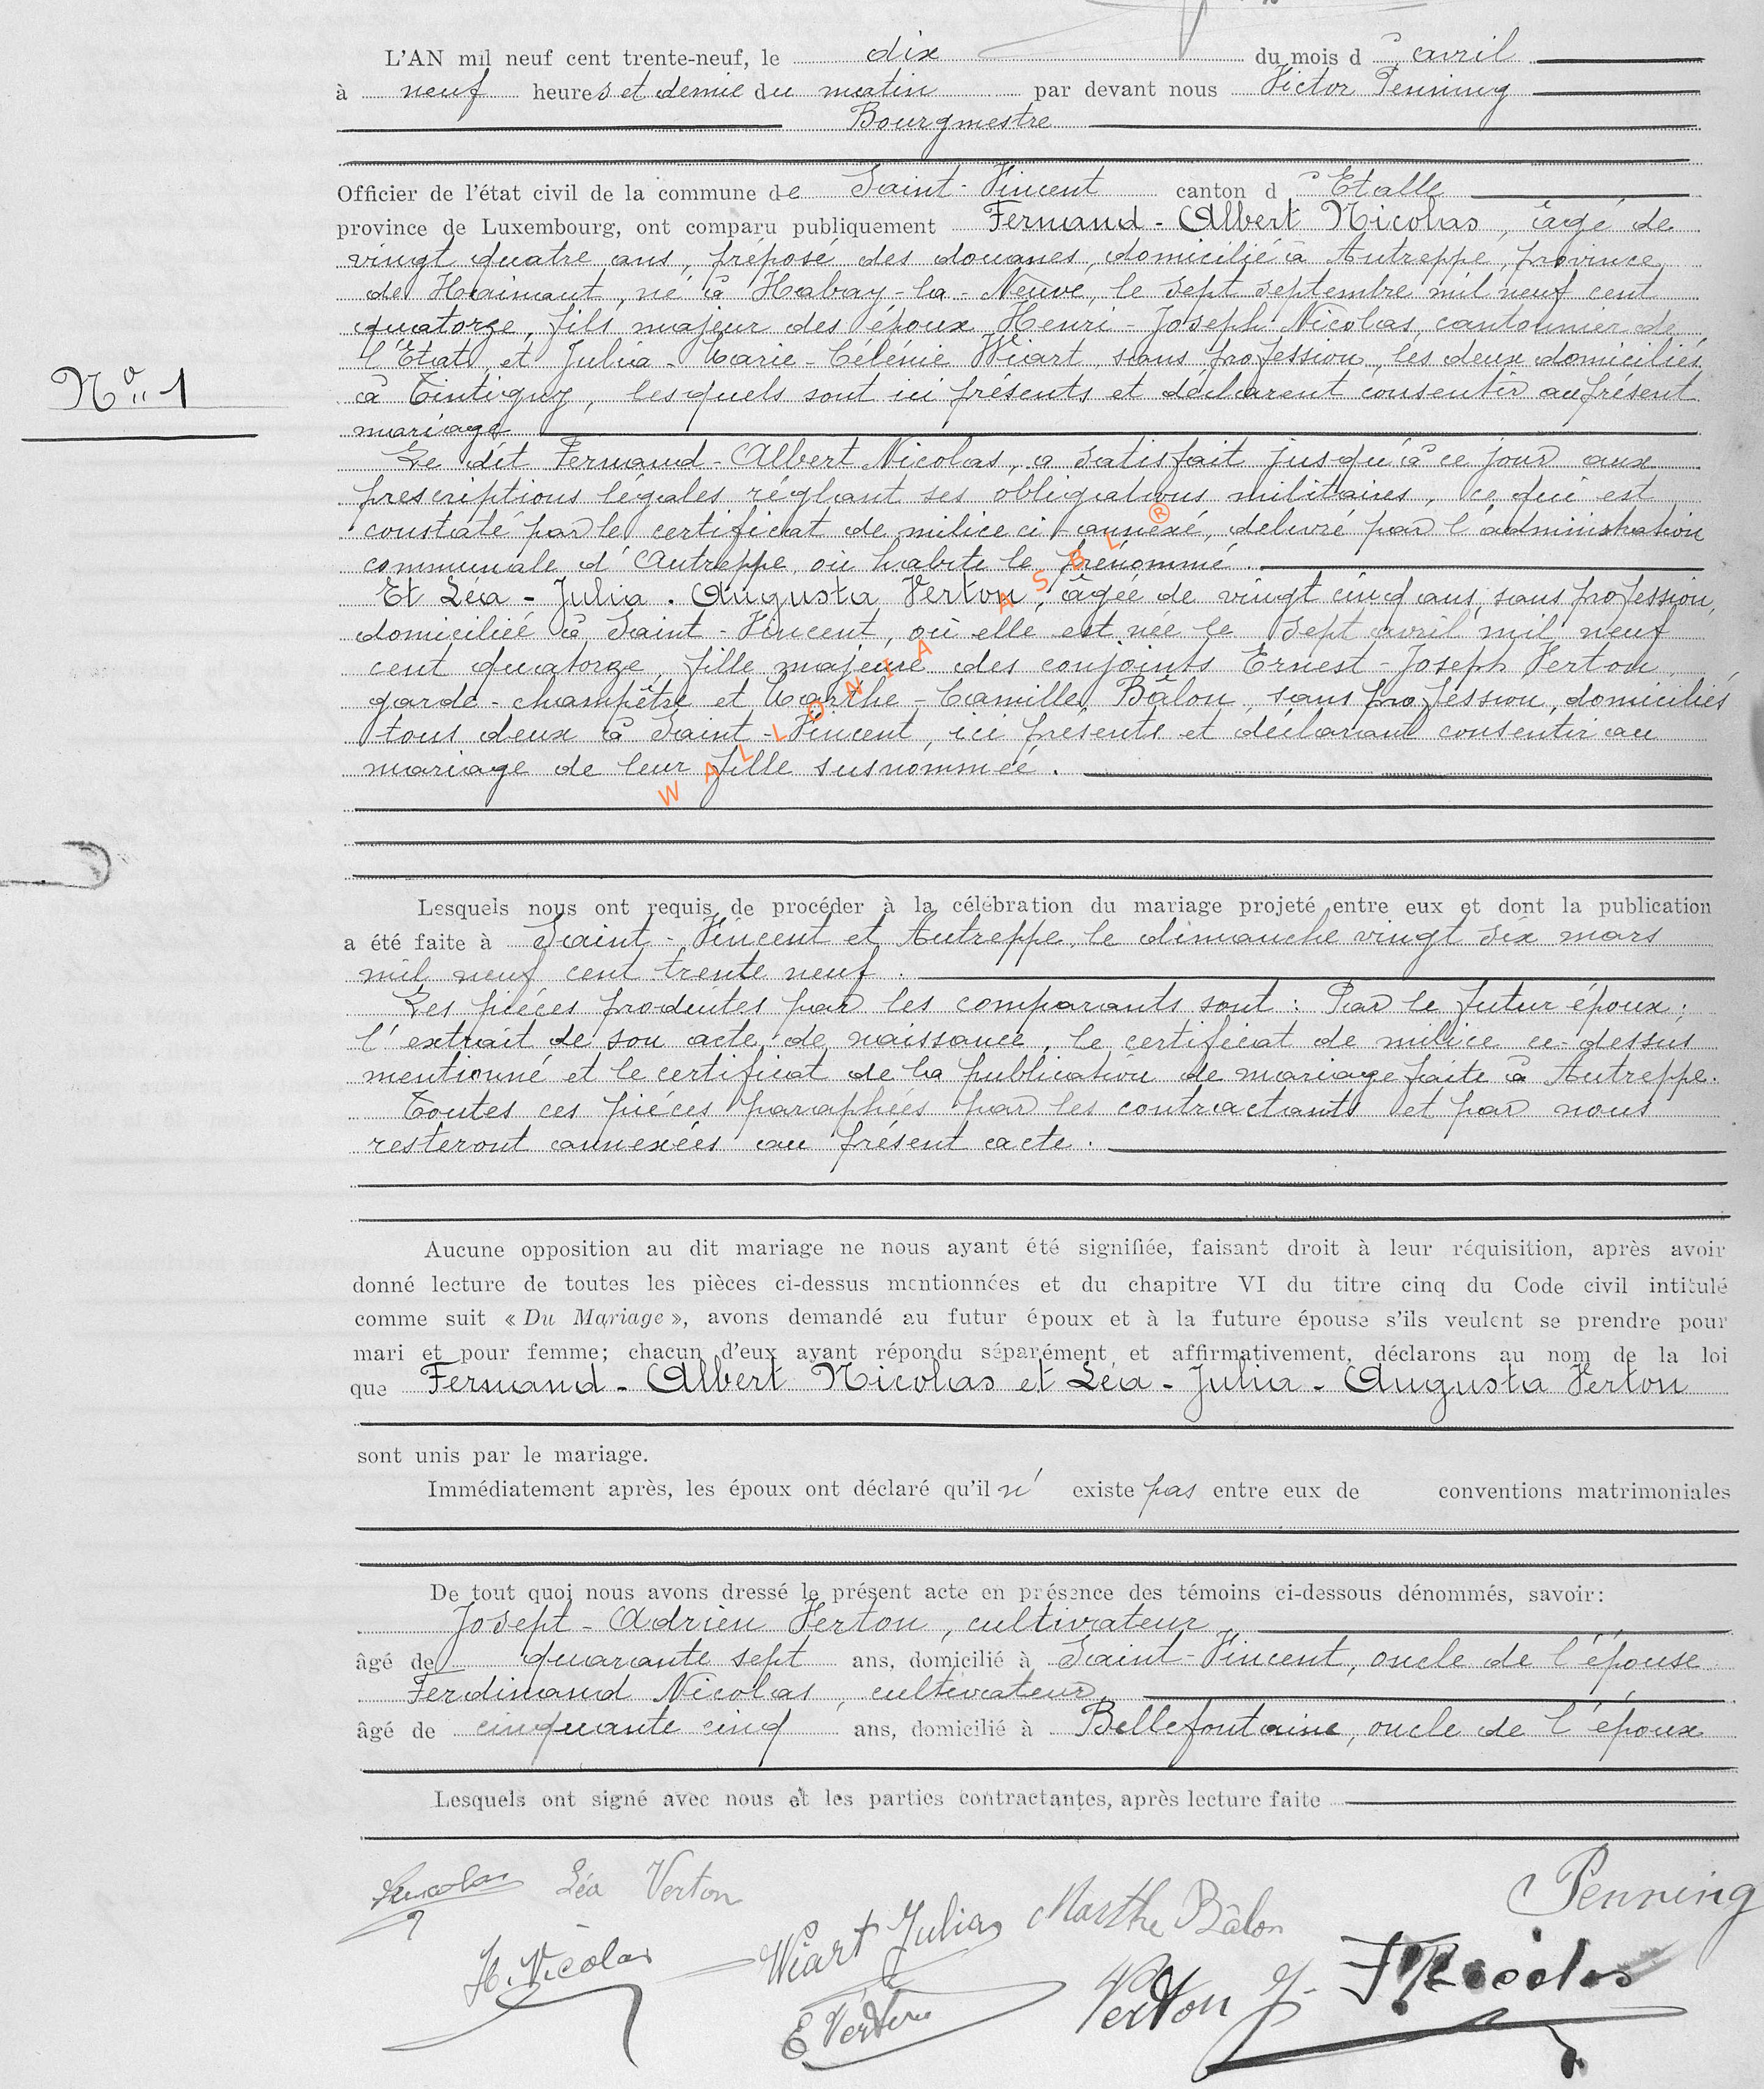 L'AN mil neuf cent trente-neuf, le dix du mois d'avril
à neuf heures et demie du matin par devant nous Victor Penning
Bourgmestre
Officier de l'état civil de la commune de Saint-Vincent canton d'Etalle
province de Luxembourg, ont comparu publiquement Fernand-Albert Nicolas, âgé de
vingt quatre ans, préposé des douanes, domicilié à Autreppe, province
de Hainaut, né à Habay-la-Neuve, le sept septembre mil neuf cent
quatorze, fils majeur des époux Henri-Joseph Nicolas, cantonnier de
l'Etat, et Julia-Marie-Célénie Wiart, sans profession, les deux domiciliés
N° 1
à Tintigny, lesquels sont ici présents et déclarent consentir au présent
mariage
Le dit Fernand-Albert Nicolas, a satisfait jusqu'à ce jour aux
prescriptions légales réglant ses obligations militaires, ce qui est
constaté par le certificat de milice ci-annexé, délivré par l'administration
communale d'Autreppe, où habite le prénommé.
Et Léa-Julia-Augusta Verton, âgée de vingt cinq ans, sans profession,
domiciliée à Saint-Vincent, où elle est née le sept avril mil neuf
cent quatorze, fille majeure des conjoints Ernest-Joseph Verton,
garde-champêtre et Marthe-Camille Bâlon, sans profession, domiciliés
tous deux à Saint-Vincent, ici présents et déclarant consentir au
mariage de leur fille susnommée.
WALLONIA ASBL ®
Lesquels nous ont requis de procéder à la célébration du mariage projeté entre eux et dont la publication
a été faite à Saint-Vincent et Autreppe, le dimanche vingt six mars
mil neuf cent trente neuf.
Les pièces produites par les comparants sont : Par le futur époux ;
l'extrait de son acte de naissance, le certificat de milice ci-dessus
mentionné et le certificat de la publication de mariage faite à Autreppe.
Toutes ces pièces paraphées par les contractants et par nous
resteront annexées au présent acte.
Aucune opposition au dit mariage ne nous ayant été signifiée, faisant droit à leur réquisition, après avoir
donné lecture de toutes les pièces ci-dessus mentionnées et du chapitre VI du titre cinq du Code civil intitulé
comme suit « Du Mariage », avons demandé au futur époux et à la future épouse s'ils veulent se prendre pour
mari et pour femme; chacun d'eux ayant répondu séparément et affirmativement, déclarons au nom de la loi
que Fernand-Albert Nicolas et Léa-Julia-Augusta Verton
sont unis par le mariage.
Immédiatement après, les époux ont déclaré qu'il n'existe pas entre eux de conventions matrimoniales
De tout quoi nous avons dressé le présent acte en présence des témoins ci-dessous dénommés, savoir:
Joseph-Adrien Verton, cultivateur
âgé de quarante sept ans, domicilié à Saint-Vincent, oncle de l'épouse
Ferdinand Nicolas, cultivateur,
âgé de cinquante cinq ans, domicilié à Bellefontaine, oncle de l'époux
Lesquels ont signé avec nous et les parties contractantes, après lecture faite
Nicolas Léa Verton Penning
H. Nicolas Wiart Julia Marthe Bâlon
E Verton Verton J. F Nicolas